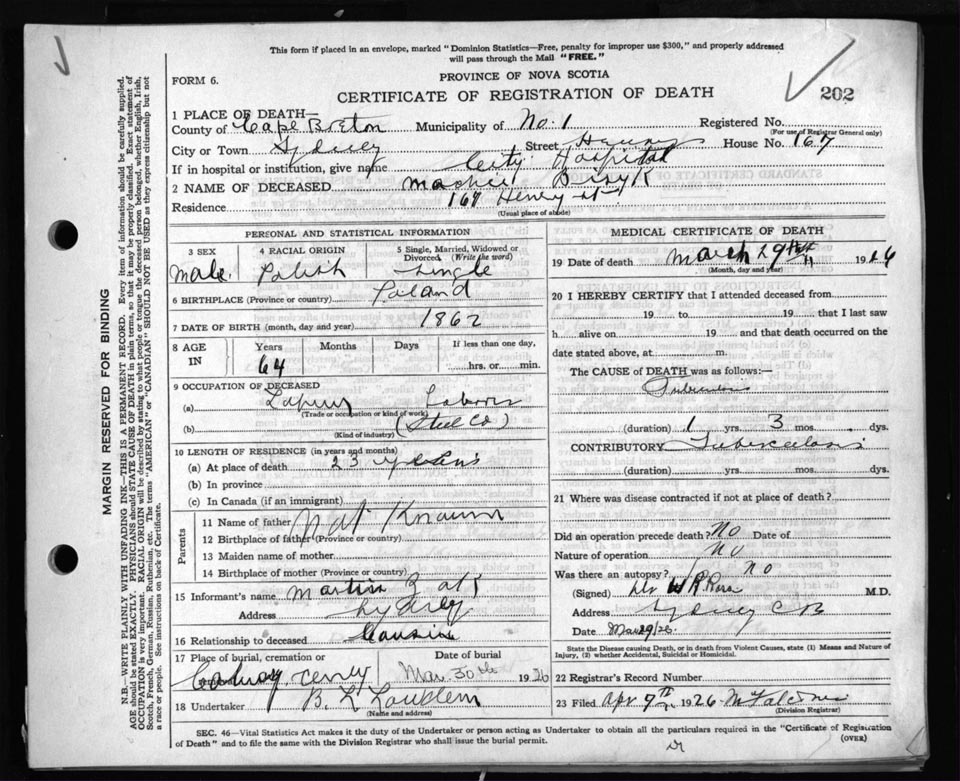 This form if placed in an envelope, marked "Dominion Statistics—Free, penalty for improper use $300," and properly addressed
will pass through the Mail "FREE."
FORM 6.
PROVINCE OF NOVA SCOTIA
CERTIFICATE OF REGISTRATION OF DEATH
202
1 PLACE OF DEATH—
County of Cape Breton Municipality of No. 1 Registered No.
(For use of Registrar General only)
City or Town Sydney Street Henry House No. 167
If in hospital or institution, give name City Hospital
2 NAME OF DECEASED
Residence 167 Henry st.
(Usual place of abode)
PERSONAL AND STATISTICAL INFORMATION
3 SEX 4 RACIAL ORIGIN 5 Single, Married, Widowed or Divorced (Write the word)
Male. Polish Single
6 BIRTHPLACE (Province or country) Poland
7 DATE OF BIRTH (month, day and year) 1862
8 AGE IN Years Months Days If less than one day,
64 hrs. or min.
9 OCCUPATION OF DECEASED
(a) Laborer
(Trade or occupation or kind of work)
(b) (Steel Co)
(Kind of industry)
10 LENGTH OF RESIDENCE (in years and months)
(a) At place of death 23 years
(b) In province
(c) In Canada (if an immigrant)
Parents
11 Name of father Not Known
12 Birthplace of father (Province or country)
13 Maiden name of mother
14 Birthplace of mother (Province or country)
15 Informant's name Martin
Address Sydney
16 Relationship to deceased Cousin
17 Place of burial, cremation or Date of burial
Mar. 30th 1926
18 Undertaker
(Name and address)
MEDICAL CERTIFICATE OF DEATH
19 Date of death March 29th 1926
(Month, day and year)
20 I HEREBY CERTIFY that I attended deceased from
19 to 19 that I last saw
h alive on 19 and that death occurred on the
date stated above, at m.
The CAUSE of DEATH was as follows:—
(duration) 1 yrs. 3 mos. dys.
CONTRIBUTORY Tuberculosis
(duration) yrs. mos. dys.
21 Where was disease contracted if not at place of death?
Did an operation precede death? No Date of
Nature of operation No
Was there an autopsy? no
(Signed) M.D.
Address Sydney CB
Date Mar 29/26.
State the Disease causing Death, or in death from Violent Causes, state (1) Means and Nature of
Injury, (2) whether Accidental, Suicidal or Homicidal.
22 Registrar's Record Number
23 Filed Apr 7th 1926
(Division Registrar)
SEC. 46—Vital Statistics Act makes it the duty of the Undertaker or person acting as Undertaker to obtain all the particulars required in the "Certificate of Registration
of Death" and to file the same with the Division Registrar who shall issue the burial permit.
(OVER)
MARGIN RESERVED FOR BINDING
N.B.—WRITE PLAINLY WITH UNFADING INK—THIS IS A PERMANENT RECORD. Every item of information should be carefully supplied.
AGE should be stated EXACTLY. PHYSICIANS should STATE CAUSE OF DEATH in plain terms, so that it may be properly classified. Exact statement of
OCCUPATION is very important. RACIAL ORIGIN will be described by stating to what people or tongue the deceased person belonged, whether English, Irish,
Scotch, French, German, Russian, Ruthenian, etc. The terms "AMERICAN" or "CANADIAN" SHOULD NOT BE USED as they express citizenship but not
a race or people. See instructions on back of Certificate.